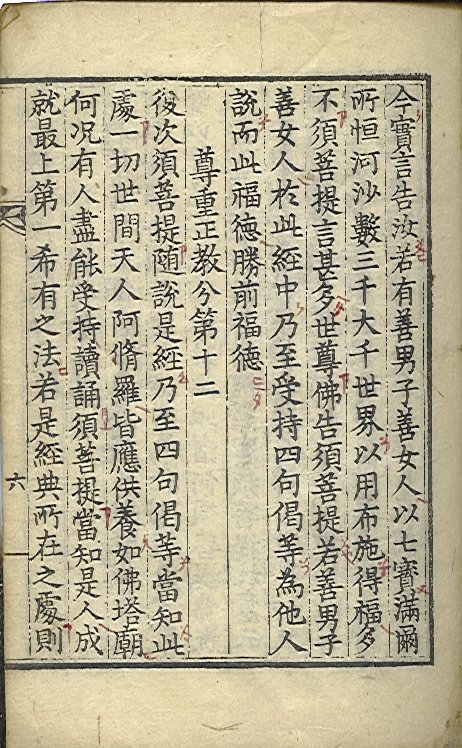 今實言告汝若有善男子善女人以七寶滿爾
所恒河沙數三千大千世界以用布施得福多
不須菩提言甚多世尊佛告須菩提若善男子
善女人於此經中乃至受持四句偈等為他人
說而此福德勝前福德
尊重正教分第十二
復次須菩提随說是經乃至四句偈等當知此
處一切世間天人阿脩羅皆應供養如佛塔廟
何况有人盡能受持讀誦須菩提當知是人成
就最上第一希有之法若是經典所在之處則
六